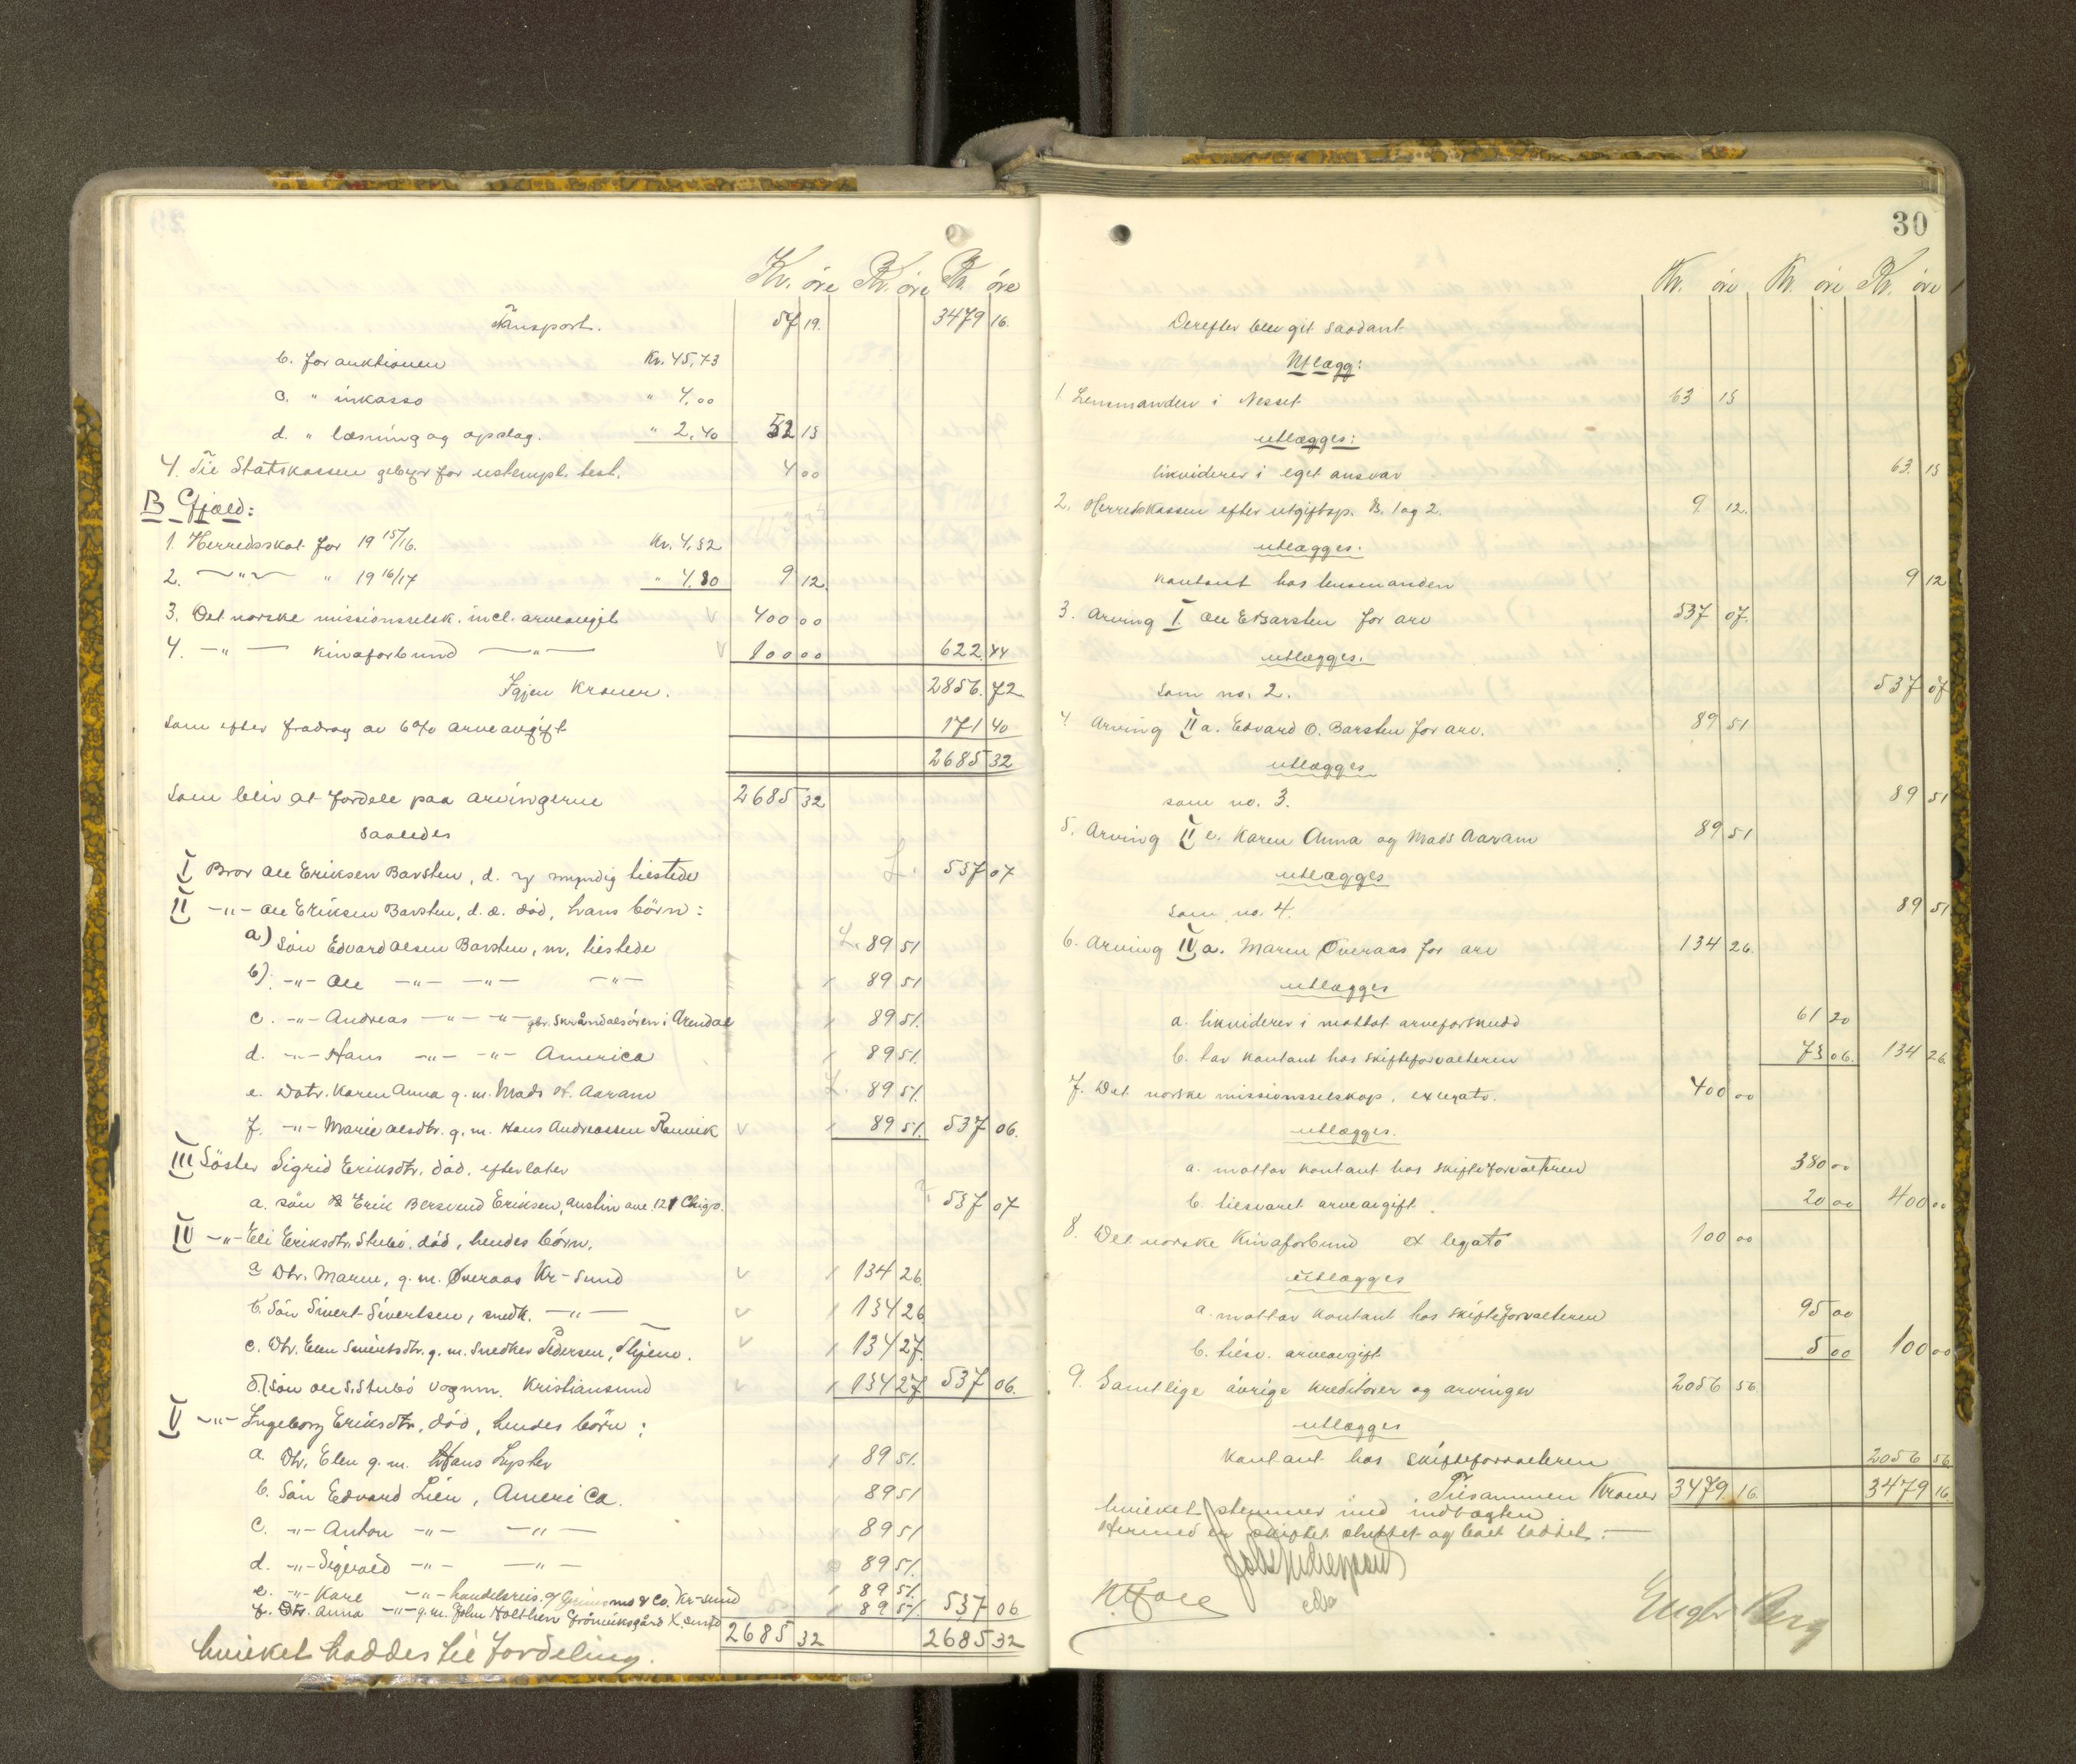 Kr. öre Kr. öre Kr. öre
Transport. 57 19. 3479 16.
b. for auktionen Kr. 45,73
c. " inkasso " 4,00
d. " læsning og opslag. " 2,40 52 13
4. Til Statskassen gebyr for ustempl. test. 4 00
B Gjæld:
1. Herredsskat for 19 15/16. Kr. 4,32
2. —"— " 19 16/17 " 4,80 9 12.
3. Det norske missionsselsk. incl. arveavgift V 400 00
4. —"— Kinaforbund —"— V 100 00 622. 44
Igjen Kroner. 2856. 72
som efter fradrag av 6% arveavgift 171 40
2685 32
som bliv at fordele paa arvingerne 2685 32
saaledes
I Bror Ole Eriksen Barsten, d. y. myndig tilstede L. 537 07
II —"— Ole Eriksen Barsten, d. æ. död, hans börn:
a) Sön Edvard Olsen Barsten, m, tilstede L. 89 51
b). —"— Ole —"— —"— —"— 89 51
c. —"— Andreas —"— —"— gbr. Skråndalsören i Arendal 89 51.
d. —"— Hans —"— —"— America 89 51.
e. Datr. Karen Anna g. m. Mads H. Aaram L. 89 51.
f. —"— Marie Olsdtr. g. m. Hans Andreassen Ranvik V 89 51. 537 06.
III Söster Sigrid Eriksdtr. död, efterlater
a. sön Erik Bersvend Eriksen, Austin ave. 121 Chigo. 537 07
IV —"— Eli Eriksdtr. Stubö, död, hendes börn,
a Dtr. Maren, g. m. Överaas Kr-sund V 134 26.
b. Sön Sivert Sivertsen, snedk. —"— V 134 26
c. Dtr. Elen Sivertsdtr. g. m. Snedker Pedersen, V 134 27.
d. Sön Ole S. Stubö vognm. Kristiansund V 134 27 537 06.
V —"— Ingeborg Eriksdtr, död, hendes börn:
a. Dtr. Elen g. m. Hans Lyster 89 51.
b. Sön Edvard Lien, America. 89 51
c. —"— Anton —"— —"— 89 51
d. —"— Sigvald —"— —"— 89 51.
e. —"— Karl —"— handelsreis. & Co. Kr-sund 89 51.
f. Dtr. Anna —"— g. m. John Holthen K.sund 89 51. 537 06
2685 32 2685 32
hvilket haddes til fordeling.
30
Kr. öre Kr. öre Kr. öre
Derefter blev git saadant
Utlægg:
1. Lensmanden i Nesset 63 13
utlægges:
likviderer i eget ansvar 63. 13
2. Herredskassen efter utgiftsp. B. 1 og 2. 9 12.
utlægges:
kontant hos lensmanden 9 12
3. Arving I. Ole E Barsten for arv 537 07.
utlægges.
som no. 2. 537 07
4 Arving II a. Edvard O. Barsten for arv. 89 51
utlægges
som no. 3. 89 51
5. Arving II e. Karen Anna og Mads Aaram 89 51
utlægges
som no. 4. 89 51
6. Arving IV a. Maren Överaas for arv 134 26.
utlægges
a. likviderer i mottat arveforskudd 61 20
b. tar kontant hos skifteforvalteren 73 06. 134 26
7. Det norske missionsselskap, ex legato. 400 00
utlægges.
a. mottar kontant hos skifteforvalteren 380 00
b. tilsvaret arveavgift. 20 00 400 00
8. Det norske Kinaforbund ex legato 100 00
utlægges
a. mottar kontant hos skifteforvalteren 95 00
b. tilsv. arveavgift 5 00 100 00
9. Samtlige övrige kreditorer og arvinger 2056 56.
utlægges
kontant hos skifteforvalteren 2056 56
Tilsammen Kroner 3479. 16. 3479 16.
hvilket stemmer med indtægten
Hermed er skiftet sluttet og boet
Engbr Berg